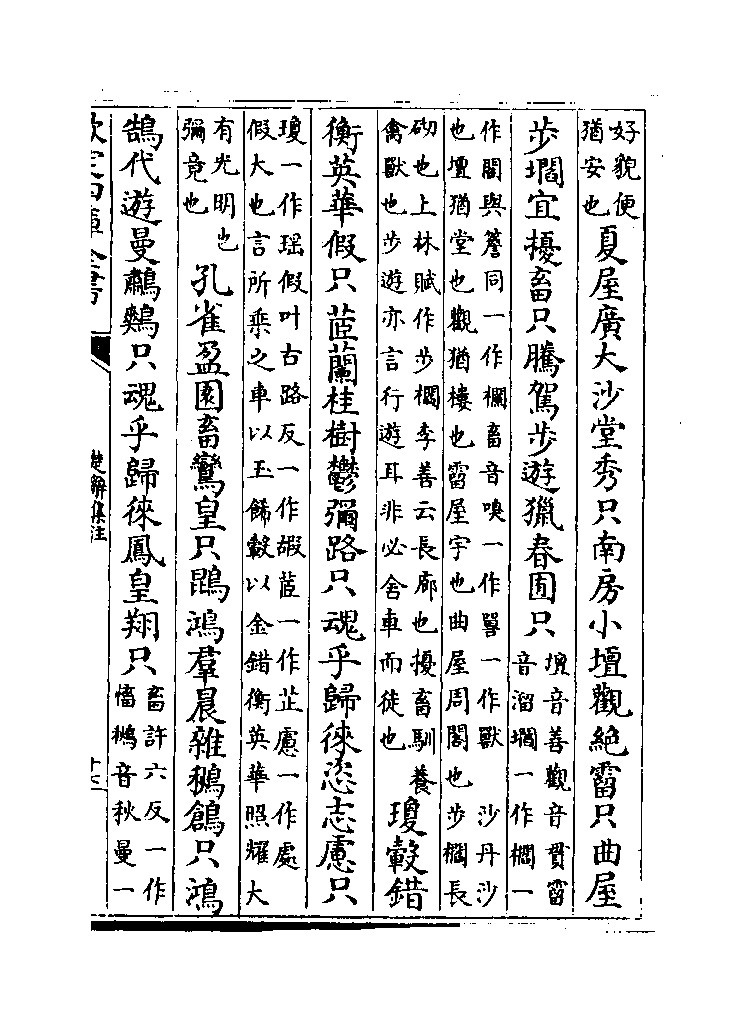 好貌便
猶安也
夏屋廣大沙堂秀只南房小壇觀絶霤只曲屋
步壛宜擾畜只騰駕步遊獵春囿只
壇音善觀音貫霤
音溜壛一作櫩一
作閻與簷同一作欄畜音嗅一作嘼一作獸　沙丹沙
也壇猶堂也觀猶樓也霤屋宇也曲屋周閣也步櫩長
砌也上林賦作步櫩李善云長廊也擾畜馴養
禽獸也步遊亦言行遊耳非必舍車而徒也
瓊轂錯
衡英華假只茝蘭桂樹鬱彌路只魂乎歸徠恣志慮只
瓊一作瑶假叶古路反一作嘏茝一作芷慮一作處
假大也言所乘之車以玉飾轂以金錯衡英華照耀大
有光明也
彌竟也
孔雀盈園畜鸞皇只鵾鴻羣晨雜鶖鶬只鴻
鵠代遊曼鷫鷞只魂乎歸徠鳳皇翔只
畜許六反一作
慉鶖音秋曼一
欽定四庫全書
楚辭集注